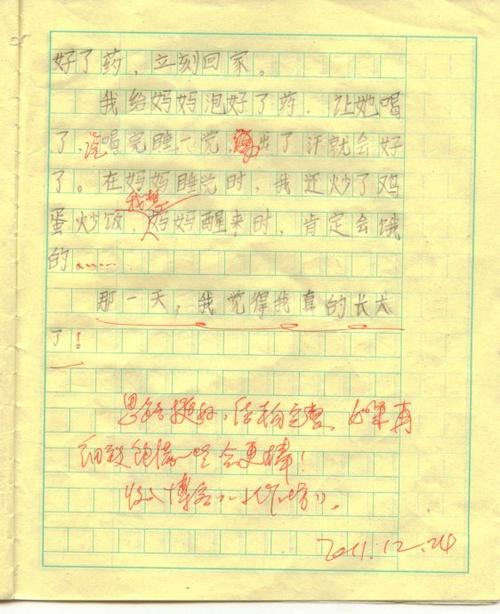 好了药，立刻回家。
我给妈妈泡好了药，让她喝
了，说喝完睡一觉，出了汗就会好
了。在妈妈睡觉时，我还炒了鸡
我想
蛋炒饭，妈妈醒来时，肯定会饿
的……
那一天，我觉得我真的长大
了！
思路挺好，结构完整，如果再
细致饱满一些会更棒！
收入博客
2011.12.24